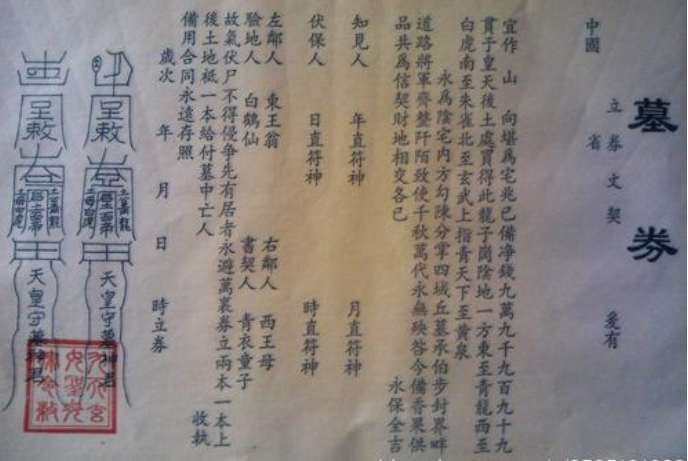 墓券
立券文契 爰有
中國 省
宜作 山 向堪為宅兆已備净錢九萬九千九百九十九
貫于皇天後土處買得此龍子崗陰地一方東至青龍西至
白虎南至朱雀北至玄武上指青天下至黃泉
永為陰宅內方勾陳分掌四域丘墓承伯步封界畔
道路將軍齊整阡陌致使千秋萬代永無殃咎今備香果供
品共為信契財地相交各已 永保全吉
知見人 年直符神 月直符神
伏保人 日直符神 時直符神
左鄰人 東王翁 右鄰人 西王母
驗地人 白鶴仙 書契人 青衣童子
故氣伏尸不得侵爭先有居者永避萬裏券立兩本一本上
後土地祗一本給付墓中亡人 收執
備用合同永遠存照
歲次 年 月 日 時立券
呈敕 天皇守墓
呈敕 天皇守墓